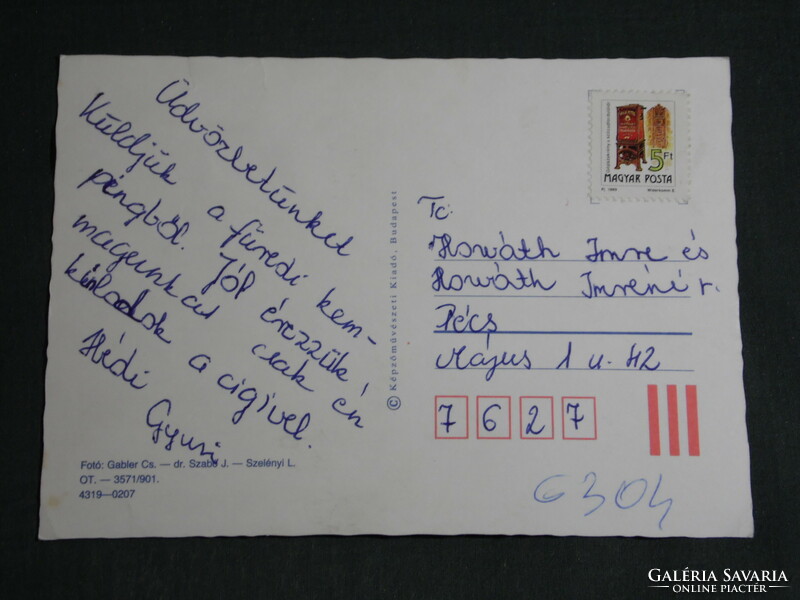 Üdvözletünket
Küldjük a füredi kem-
pingből. Jól érezzük
magunkat csak én
a cigivel.
Hédi
Gyuri
Fotó: Gabler Cs. — dr. Szabó J. — Szelényi L.
OT. — 3571/901.
4319—0207
© Képzőművészeti Kiadó, Budapest
5 Ft
MAGYAR POSTA
Tc:
Horváth Imre és
Horváth Imréné r.
Pécs
Május 1 u. 42
7 6 2 7
6304
GALÉRIA SAVARIA
ONLINE PIACTÉR